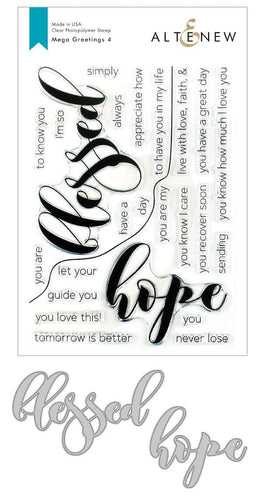 Made in USA
Clear Photopolymer Stamp
Mega Greetings 4
ALTENEW
simply
to know you
I'm so
always
appreciate how
to have you in my life
live with love, faith, &
you have a great day
you know how much I love you
blessed
have a
day
you are my
you know I care
you recover soon
sending
you are
let your
guide you
hope
you love this!
you
tomorrow is better
never lose
blessed
hope